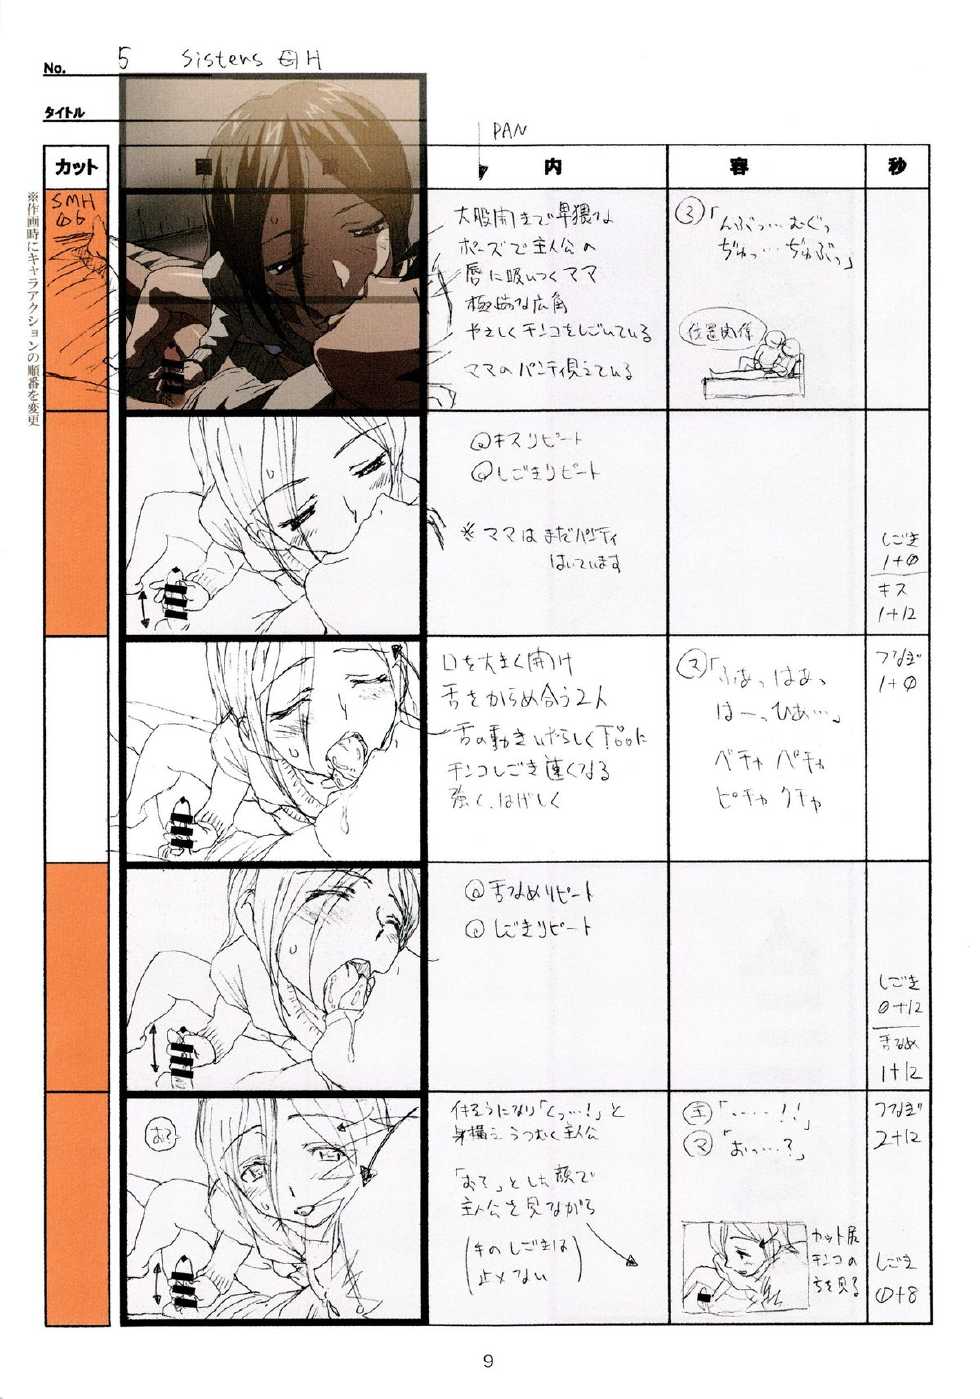 No. 5 Sisters 母H
タイトル
PAN
カット 画 面 内 容 秒
※作画時にキャラアクションの順番を変更
SMH
06
大股開きで卑猥な
ポーズで主人公の
唇に吸いつくママ
極端な広角
やさしくチンコをしごいている
ママのパンティ見えている
「んぶっ…むぐっ
ぢゅっ…ぢゅぶっ」
位置関係
キスリピート
しごきリピート
※ママはまだパンティ
はいています
しごき
1+0
キス
1+12
口を大きく開け
舌をからめ合う2人
チンコしごき速くなる
強く、はげしく
マ「ふあっはあ、
はーっひあ…」
ベチャ パチャ
ピチャ クチャ
つなぎ
1+0
舌なめリピート
しごきリピート
しごき
0+12
舌なめ
1+12
イキそうになり「くっ…!」と
身構えうつむく主人公
「おや」とした顔で
主人公を見ながら
(手のしごきは
止めない)
主「……!!」
マ「おっ…?」
カット尻
チンコの
方を見る
つなぎ
2+12
しごき
0+8
9